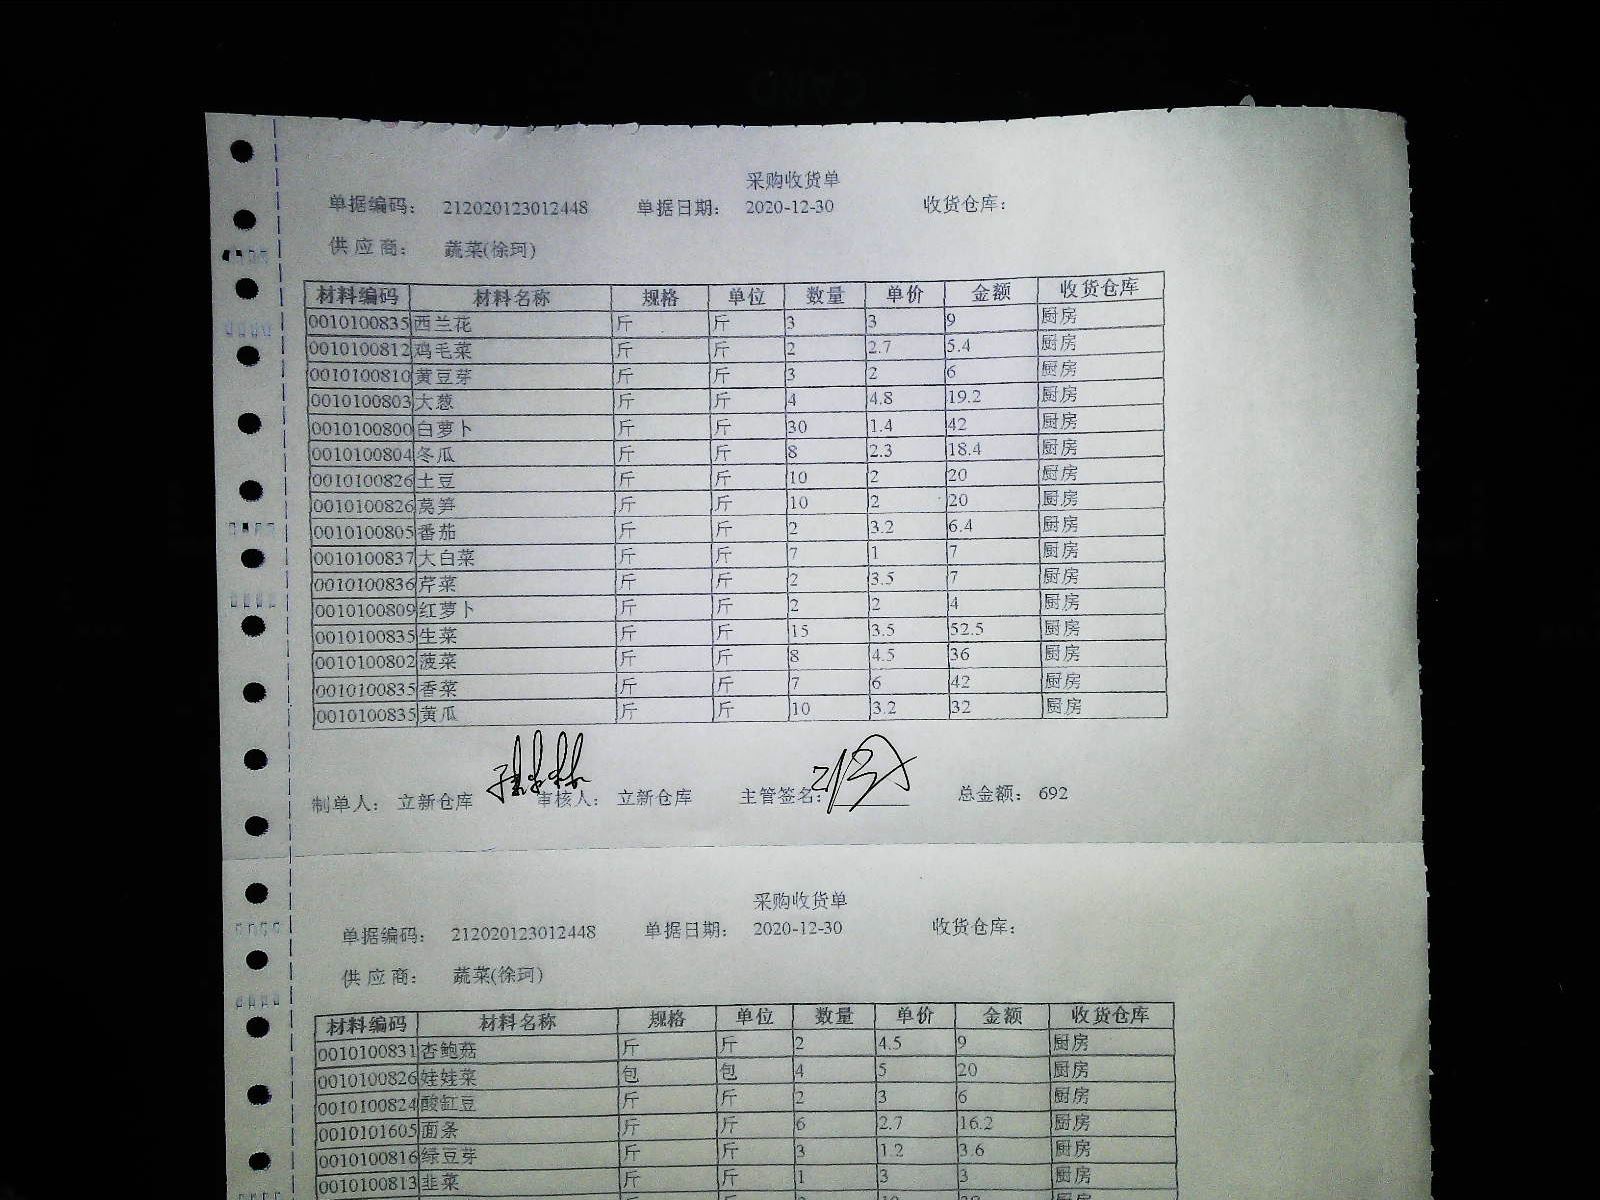 采购收货单
单据编码： 212020123012448 单据日期： 2020-12-30 收货仓库：
供 应 商： 蔬菜(徐珂)
材料编码 材料名称 规格 单位 数量 单价 金额 收货仓库
0010100835 西兰花 斤 斤 3 3 9 厨房
0010100812 鸡毛菜 斤 斤 2 2.7 5.4 厨房
0010100810 黄豆芽 斤 斤 3 2 6 厨房
0010100803 大葱 斤 斤 4 4.8 19.2 厨房
0010100800 白萝卜 斤 斤 30 1.4 42 厨房
0010100804 冬瓜 斤 斤 8 2.3 18.4 厨房
0010100826 土豆 斤 斤 10 2 20 厨房
0010100826 莴笋 斤 斤 10 2 20 厨房
0010100805 番茄 斤 斤 2 3.2 6.4 厨房
0010100837 大白菜 斤 斤 7 1 7 厨房
0010100836 芹菜 斤 斤 2 3.5 7 厨房
0010100809 红萝卜 斤 斤 2 2 4 厨房
0010100835 生菜 斤 斤 15 3.5 52.5 厨房
0010100802 菠菜 斤 斤 8 4.5 36 厨房
0010100835 香菜 斤 斤 7 6 42 厨房
0010100835 黄瓜 斤 斤 10 3.2 32 厨房
制单人： 立新仓库 审核人： 立新仓库 主管签名： 总金额： 692
采购收货单
单据编码： 212020123012448 单据日期： 2020-12-30 收货仓库：
供 应 商： 蔬菜(徐珂)
材料编码 材料名称 规格 单位 数量 单价 金额 收货仓库
0010100831 杏鲍菇 斤 斤 2 4.5 9 厨房
0010100826 娃娃菜 包 包 4 5 20 厨房
0010100824 酸缸豆 斤 斤 2 3 6 厨房
0010101605 面条 斤 斤 6 2.7 16.2 厨房
0010100816 绿豆芽 斤 斤 3 1.2 3.6 厨房
0010100813 韭菜 斤 斤 1 3 3 厨房